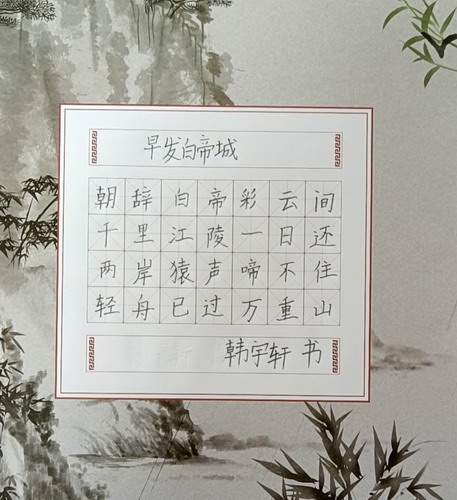 早发白帝城
朝辞白帝彩云间
千里江陵一日还
两岸猿声啼不住
轻舟已过万重山
韩宇轩 书